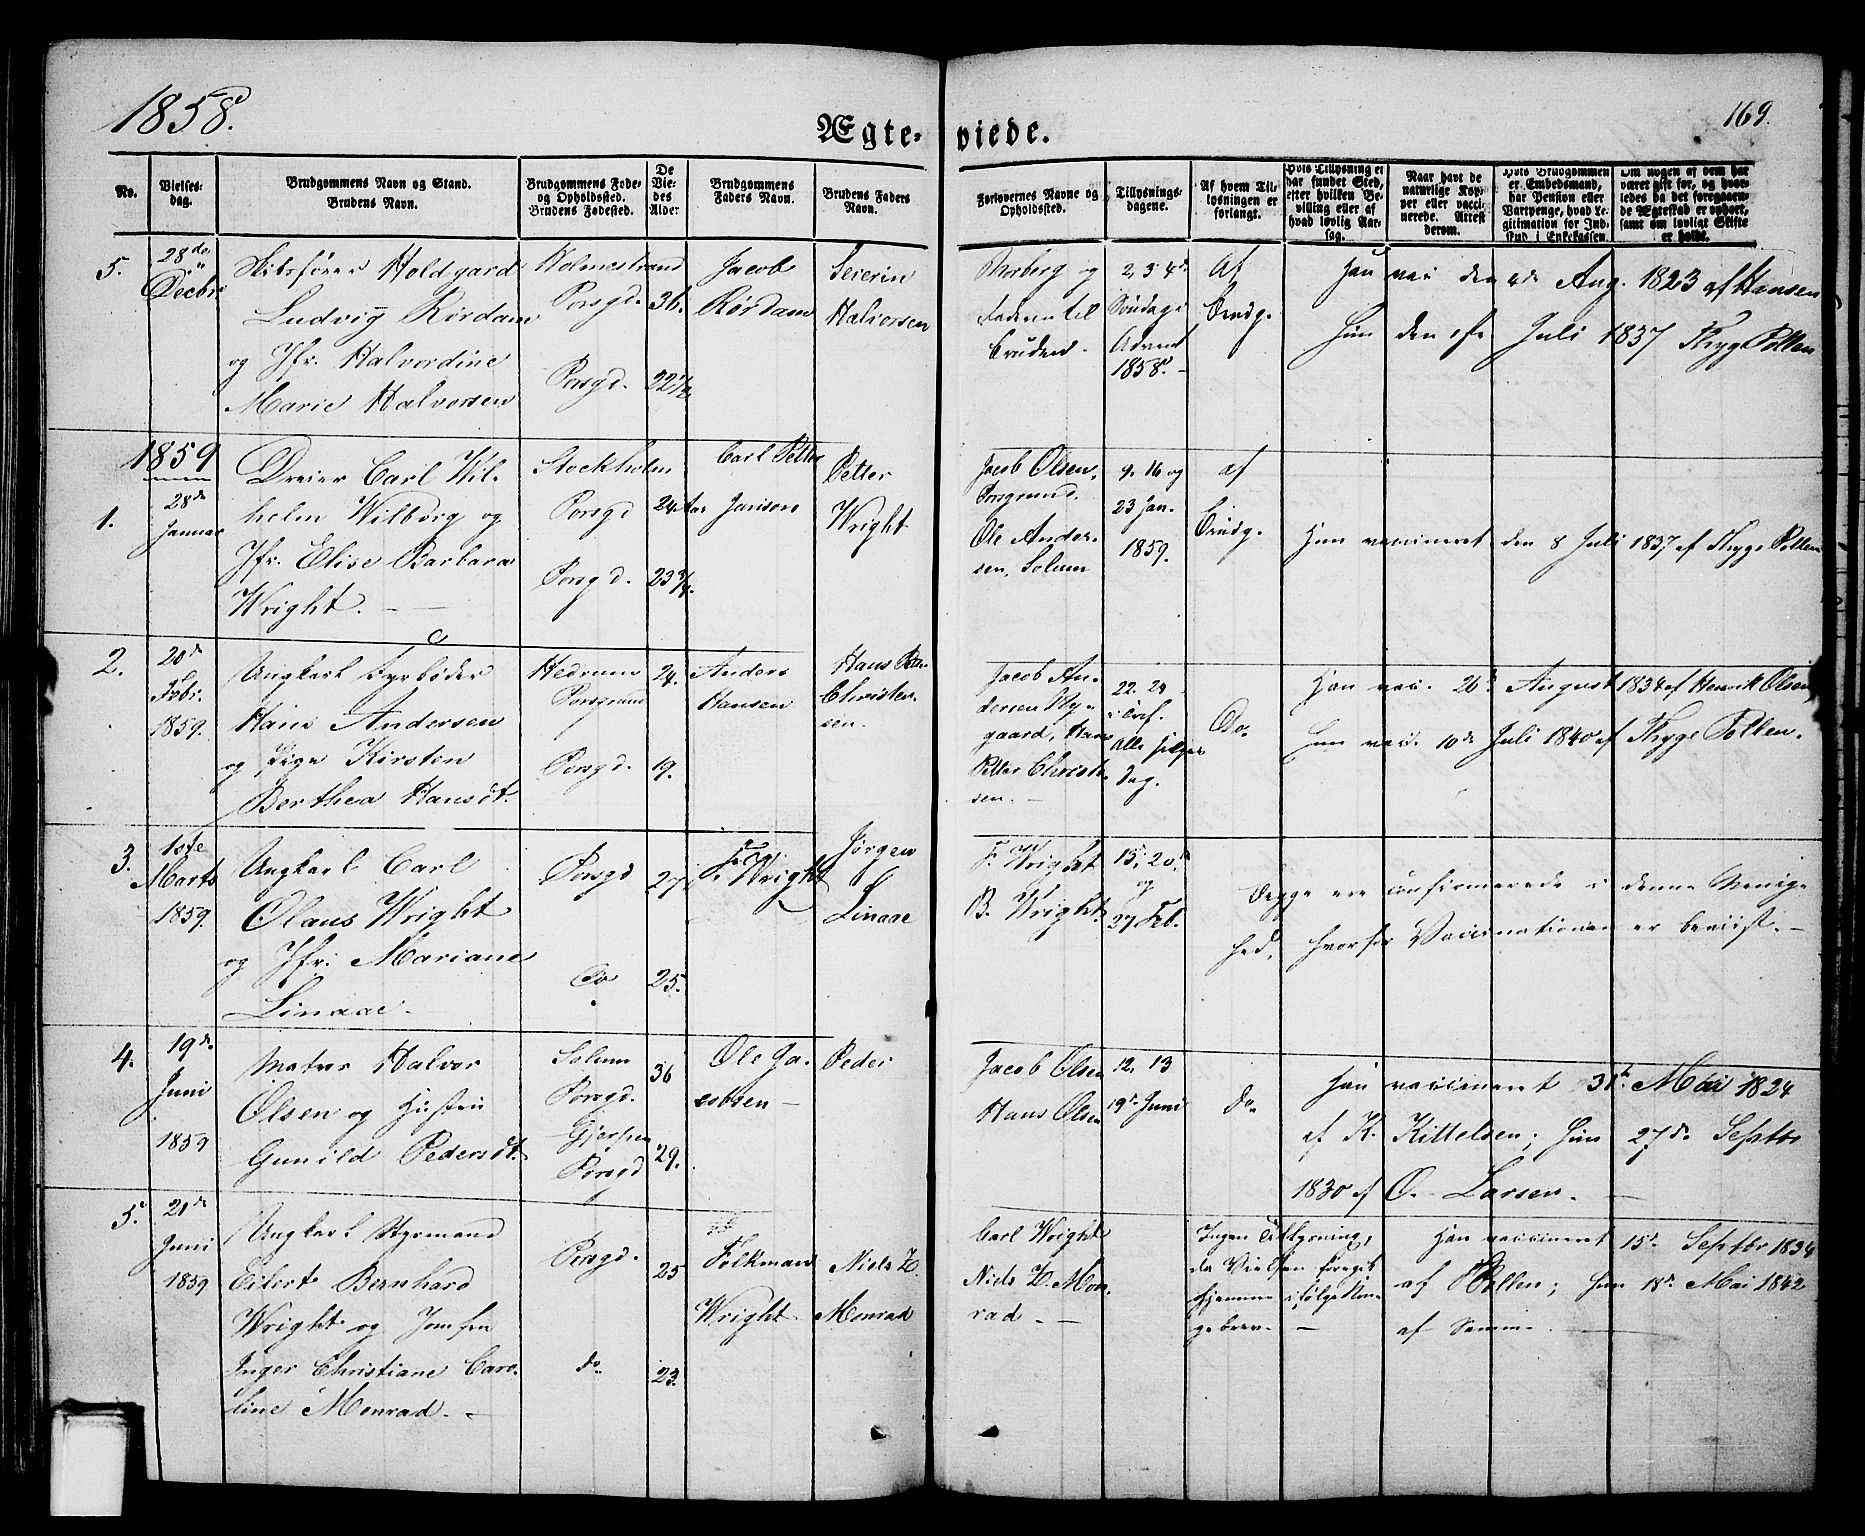 1858.
169.
Ægte-viede.
No.
Vielses-
dag.
Brudgommens Navn og Stand.
Brudens Navn.
Brudgommens Føde-
og Opholdsted.
Brudens Fødested.
De
Vie-
des
Alder
Brudgommens
Faders Navn.
Brudens Faders
Navn.
Forlovernes Navne og
Opholdsted.
Tillysnings-
dagene.
Af hvem Til-
lysningen er
forlangt.
Hvis Tillysning ei
har fundet Sted,
efter hvilken Be-
villing eller af
hvad lovlig Aar-
sag.
Naar havt de
naturlige Kop-
per eller vacci-
nerede. Attest
derom.
Hvis Brudgommen
er Embedsmand,
har Pension eller
Vartpenge, hvad Le-
gitimation for Ind-
skud i Enkekassen.
Om nogen af dem har
været gift før, og hvor-
ledes da det foregaaen-
de Ægteskab er ophørt,
samt om lovligt Skifte
er holdt.
5.
28de
Decbr
Skibsfører Holdgard
Ludvig Rørdam
og Jfr. Halvordine
Marie Halvorsen
Holmestrand
Porsgd.
Porsgd.
36.
22½
Jacob
Rørdam
Seierin
Halvorsen
Forberg og
Faderen til
Bruden.
2, 3, 4de
Søndag i
Advent
1858.
Af
Brudg.
Han vac den 4de Aug. 1823 af Hansen
Hun den Juli 1837 Thyge Pollen
1859
1.
28de
Januar
Dreier Carl Wil-
helm Wilborg og
Jfr. Elise Barbara
Wright.
Stockholm
Porsgd
Porsgd.
24
23¾
Carl Petter
Janson
Petter
Wright
Jacob Olsen,
Porsgrund.
Ole Ander-
sen, Solum
9. 16 og
23 Jan.
1859.
af
Brudg.
Hun vaccineret den 8 Juli 1837 af Thyge Pollen
2.
20de
Febr.
1859.
Ungkarl Fyrbøder
Hans Andersen
og Pige Kirsten
Berthea Hansdt.
Hedrum
Porsgrund
Porsgd.
24.
19.
Anders
Hansen
Hans Petter
Christen-
sen.
Jacob An-
dersen Ny-
gaard, Hans
Petter Christen-
sen.
22. 24
Alle
Dag.
Do.
Han vac. 26de August 1834 af Henrik Olsen
Hun vac. 10de Juli 1840 af Thyge Pollen.
3.
1ste
Marts
1859.
Ungkarl Carl
Olaus Wright
og Jfr. Mariane
Linaae.
Porsgd
Do
27
25.
F. Wright
Jørgen
Linaae
F. Wright
B. Wright
13, 20de
og
27 Feb.
Begge ere confirmerede i denne Menig-
hed, hvorfor Vaccinationen er beviist.
4.
19de
Juni
1859
Matros Halvor
Olsen og Hustru
Gunild Pedersdt.
Solum
Porsgd.
Gjerpen
Porsgd
36
29.
Ole Ja-
cobsen
Peder
Jacob Olsen
Hans Olsen
12. 13
19de Juni
do.
Han vaccineret 31te Mai 1824
af K. Kittelsen; Hun 27de Septbr
1830 af O. Larsen.
5.
21de
Juni
1859
Ungkarl Styrmand
Eilert Bernhard
Wright og Jomfru
Inger Christiane Caro-
line Monrad.
Porsgd.
do.
25
23.
Folkman
Wright
Niels Z.
Monrad
Carl Wright
Niels Z. Mon-
rad
Ingen Tillysning,
da Vielsen foregik
hjemme ifølge Kon-
gebrev.
Han vaccineret 15de Septbr 1834
af Pollen; Hun 18de Mai 1842
af Samme.